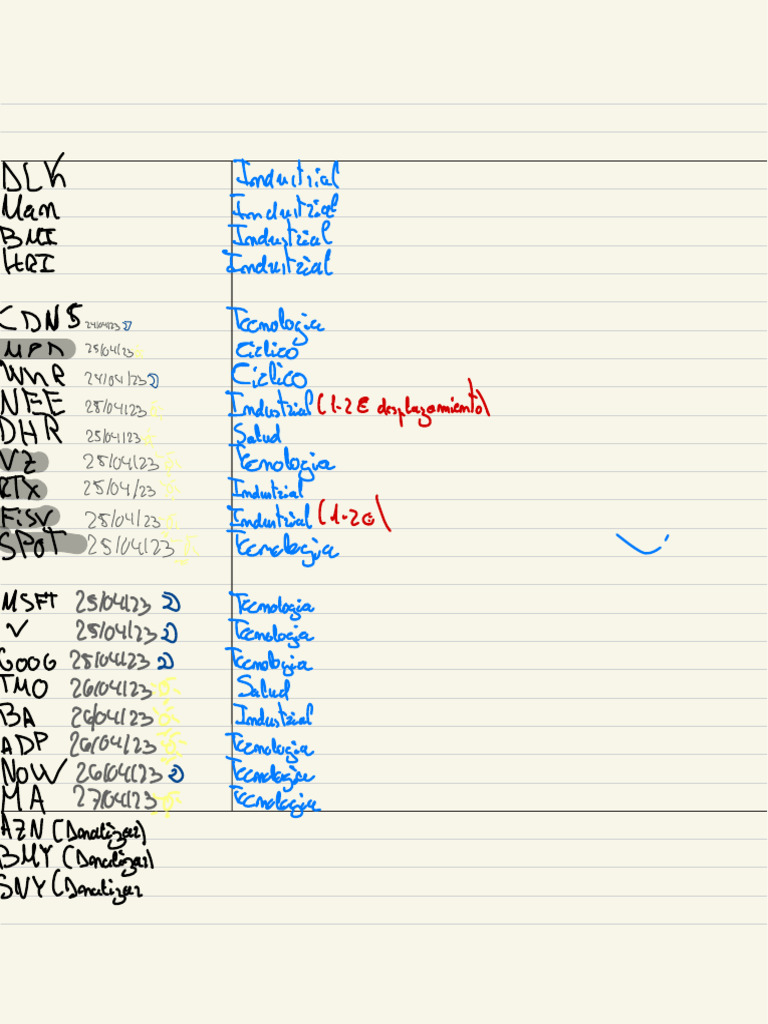 DLH Industrial
Man Industrial
BMI Industrial
HRI Industrial
CDNS 24/04/23 Tecnologia
25/04/23 Ciclico
WHR 24/04/23 Ciclico
NEE 25/04/23 Industrial (1-2 € desplazamiento)
DHR 25/04/23 Salud
VZ 25/04/23 Tecnologia
RTX 25/04/23 Industrial
FiSV 25/04/23 Industrial (1-2€)
SPOT 25/04/23 Tecnologia
MSFT 25/04/23 Tecnologia
V 25/04/23 Tecnologia
GOOG 25/04/23 Tecnologia
TMO 26/04/23 Salud
BA 26/04/23 Industrial
ADP 26/04/23 Tecnologia
NOW 26/04/23 Tecnologia
MA 27/04/23 Tecnologia
AZN
BMY
SNY